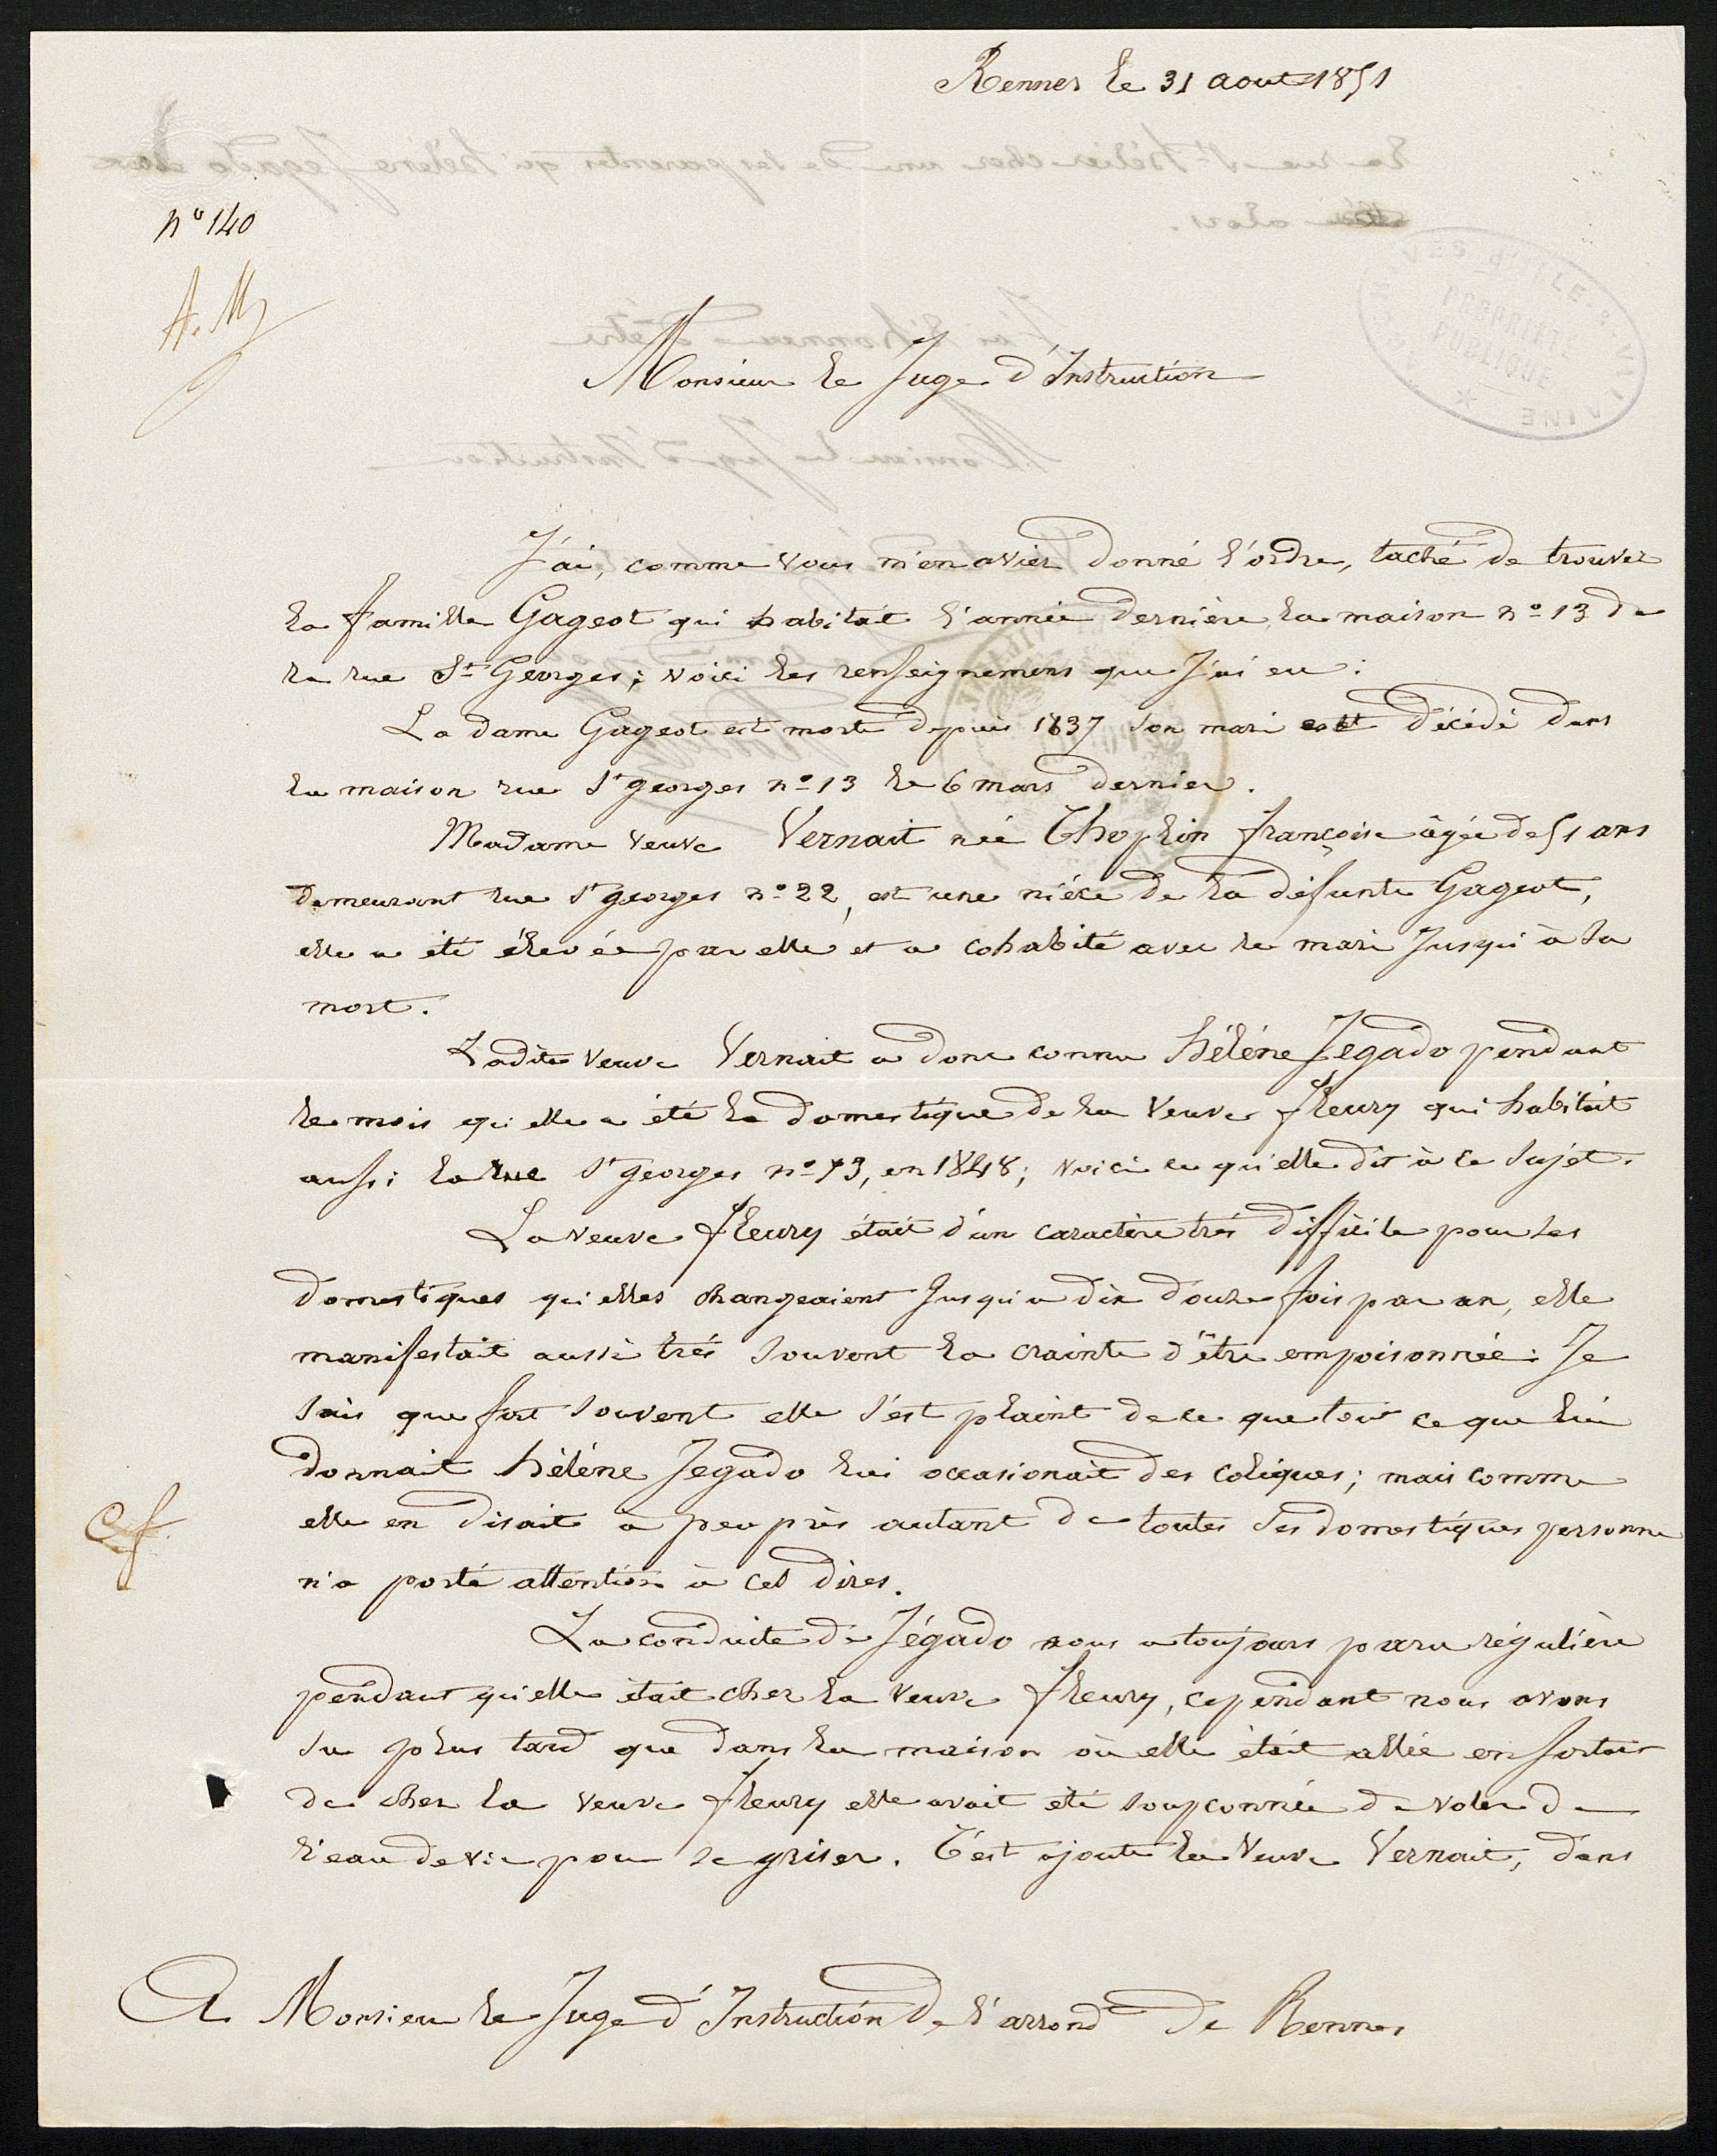 Rennes le 31 aout 1851
n° 140
Monsieur le Juge d'Instruction
J'ai, comme vous m'en aviez donné l'ordre, taché de trouver
la famille Gageot qui habitait l'année dernière la maison n° 13 de
la rue St Georges; voici les renseignemens que j'ai eu:
La dame Gageot est morte depuis 1837 son mari est décédé dans
la maison rue St georges n° 13 le 6 mars dernier.
Madame veuve Vernait née Choplin françoise âgée de 51 ans
demeurant rue St georges n° 22, est une niéce de la défunte Gageot,
elle a été élevée par elle et a cohabité avec le mari jusqu'à sa
mort.
Ladite veuve Vernait a donc connu Hélène Jegado pendant
le mois qu'elle a été la domestique de la veuve fleury qui habitait
aussi la rue St georges n° 13, en 1848; voici ce qu'elle dit à ce sujet.
La veuve fleury était d'un caractère très difficile pour ses
domestiques qu'elles changeaient jusqu'a dix douze fois par an, elle
manifestait aussi très souvent la crainte d'être empoisonnée: Je
sais que fort souvent elle s'est plaint de ce que tout ce que lui
donnait hélène Jegado lui occasionait des coliques; mais comme
elle en disait à peu près autant de toutes ses domestiques personne
n'a porté attention à cet dires.
La conduite de Jégado nous a toujours paru régulière
pendant qu'elle était chez la veuve fleury, cependant nous avons
su plus tard que dans la maison où elle était allée en sortant
de chez la veuve fleury elle avait été soupçonnée de voler de
l'eau de vie pour se griser. C'est ajoute la veuve Vernait, dans
A Monsieur le Juge d'Instruction de l'arrond de Rennes
ARCHIVES d'ILLE-&-VILAINE
PROPRIÉTÉ
PUBLIQUE